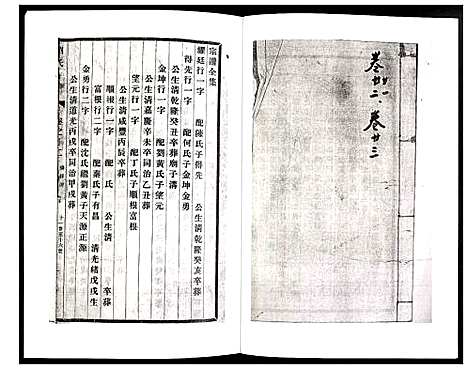 卷廿二、卷廿三
宗譜全集
耀廷行一字　配陳氏子得先　公生清乾隆癸亥卒葬
得先行一字　配何氏子金坤金勇
公生清乾隆癸丑卒葬廟子溝
金坤行一字　配劉黃氏子望元
公生清嘉慶辛未卒同治乙丑葬
望元行一字　配丁氏子順根富根
公生清咸豐丙辰卒葬
順根行一字　配　氏　公生清　卒葬
富根行二字　配秦氏子有昌　清光緒戊戌生
金勇行二字　配沈氏繼劉黃子天源正源
公生清道光丙戌卒同治甲戌葬